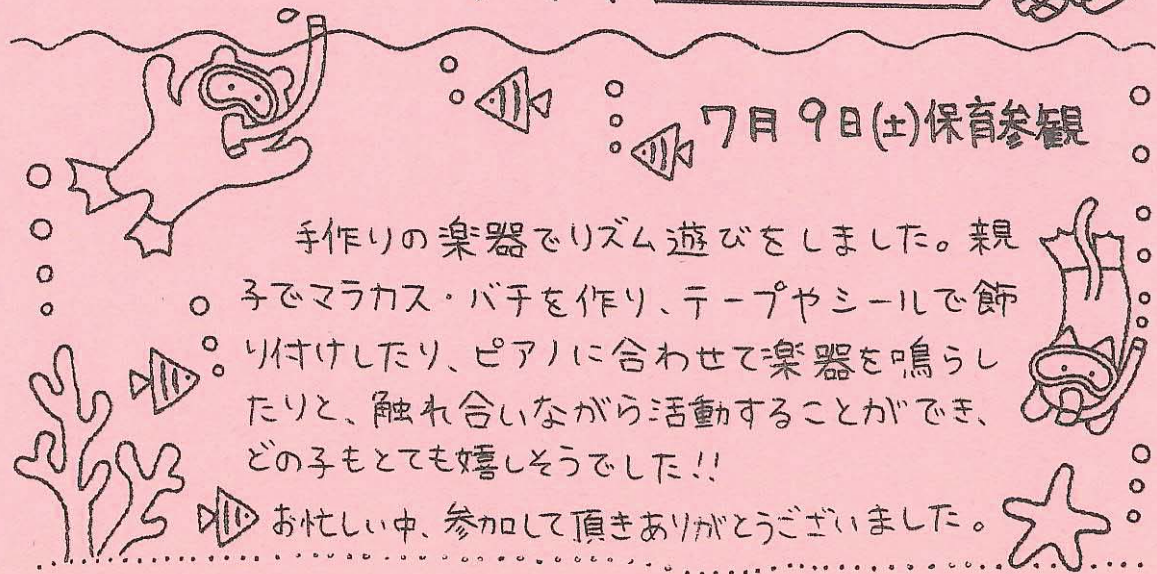 7月9日(土)保育参観
手作りの楽器でリズム遊びをしました。親
子でマラカス・バチを作り、テープやシールで飾
り付けしたり、ピアノに合わせて楽器を鳴らし
たりと、触れ合いながら活動することができ、
どの子もとても嬉しそうでした!!
お忙しい中、参加して頂きありがとうございました。